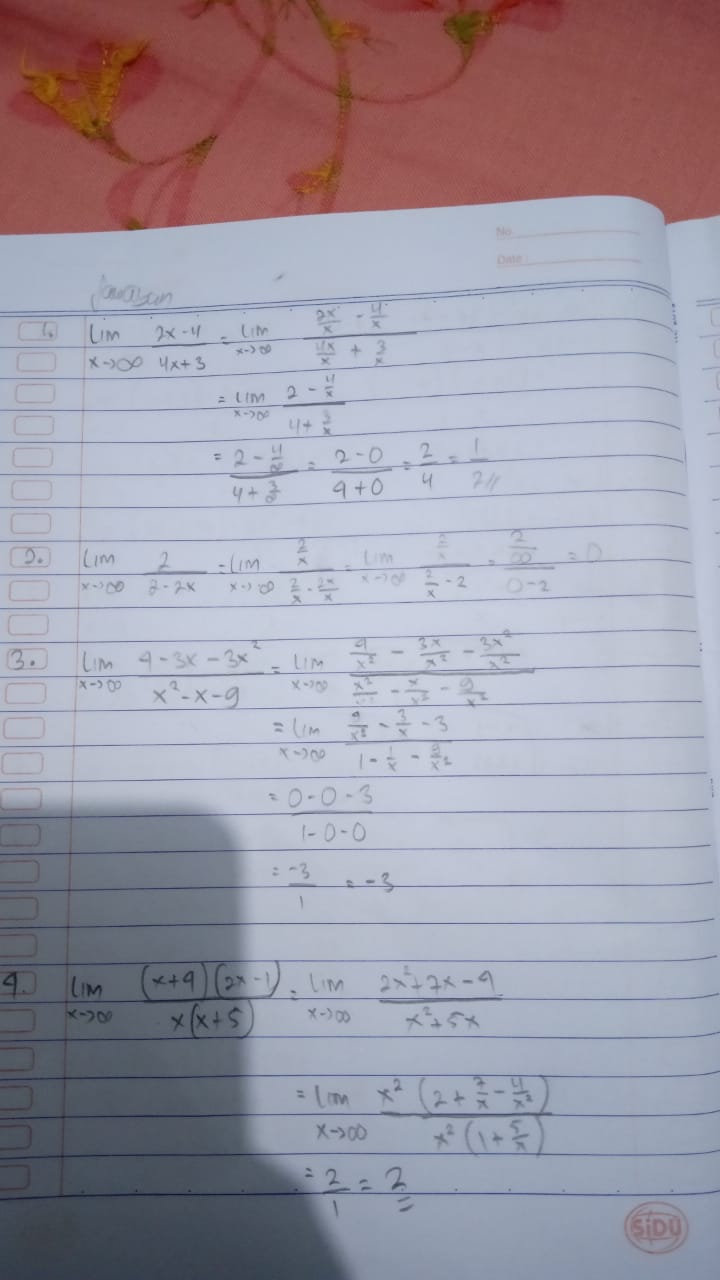 No.
Date:
Jawaban
1. Lim x→∞ (2x-4)/(4x+3) = Lim x→∞ (2x/x - 4/x)/(4x/x + 3/x)
= Lim x→∞ (2 - 4/x)/(4 + 3/x)
= (2 - 4/∞)/(4 + 3/∞) = (2-0)/(4+0) = 2/4 = 1/2 //
2. Lim x→∞ 2/(2-2x) = Lim x→∞ (2/x)/(2/x - 2x/x) = Lim x→∞ (2/x)/(2/x - 2) = (2/∞)/(0-2) = 0
3. Lim x→∞ (4-3x-3x²)/(x²-x-9) = Lim x→∞ (4/x² - 3x/x² - 3x²/x²)/(x²/x² - x/x² - 9/x²)
= Lim x→∞ (4/x² - 3/x - 3)/(1 - 1/x - 9/x²)
= (0-0-3)/(1-0-0)
= -3/1 = -3
4. Lim x→∞ (x+4)(2x-1)/x(x+5) = Lim x→∞ (2x²+7x-4)/(x²+5x)
= Lim x→∞ x²(2 + 7/x - 4/x²)/x²(1 + 5/x)
= 2/1 = 2
SiDU